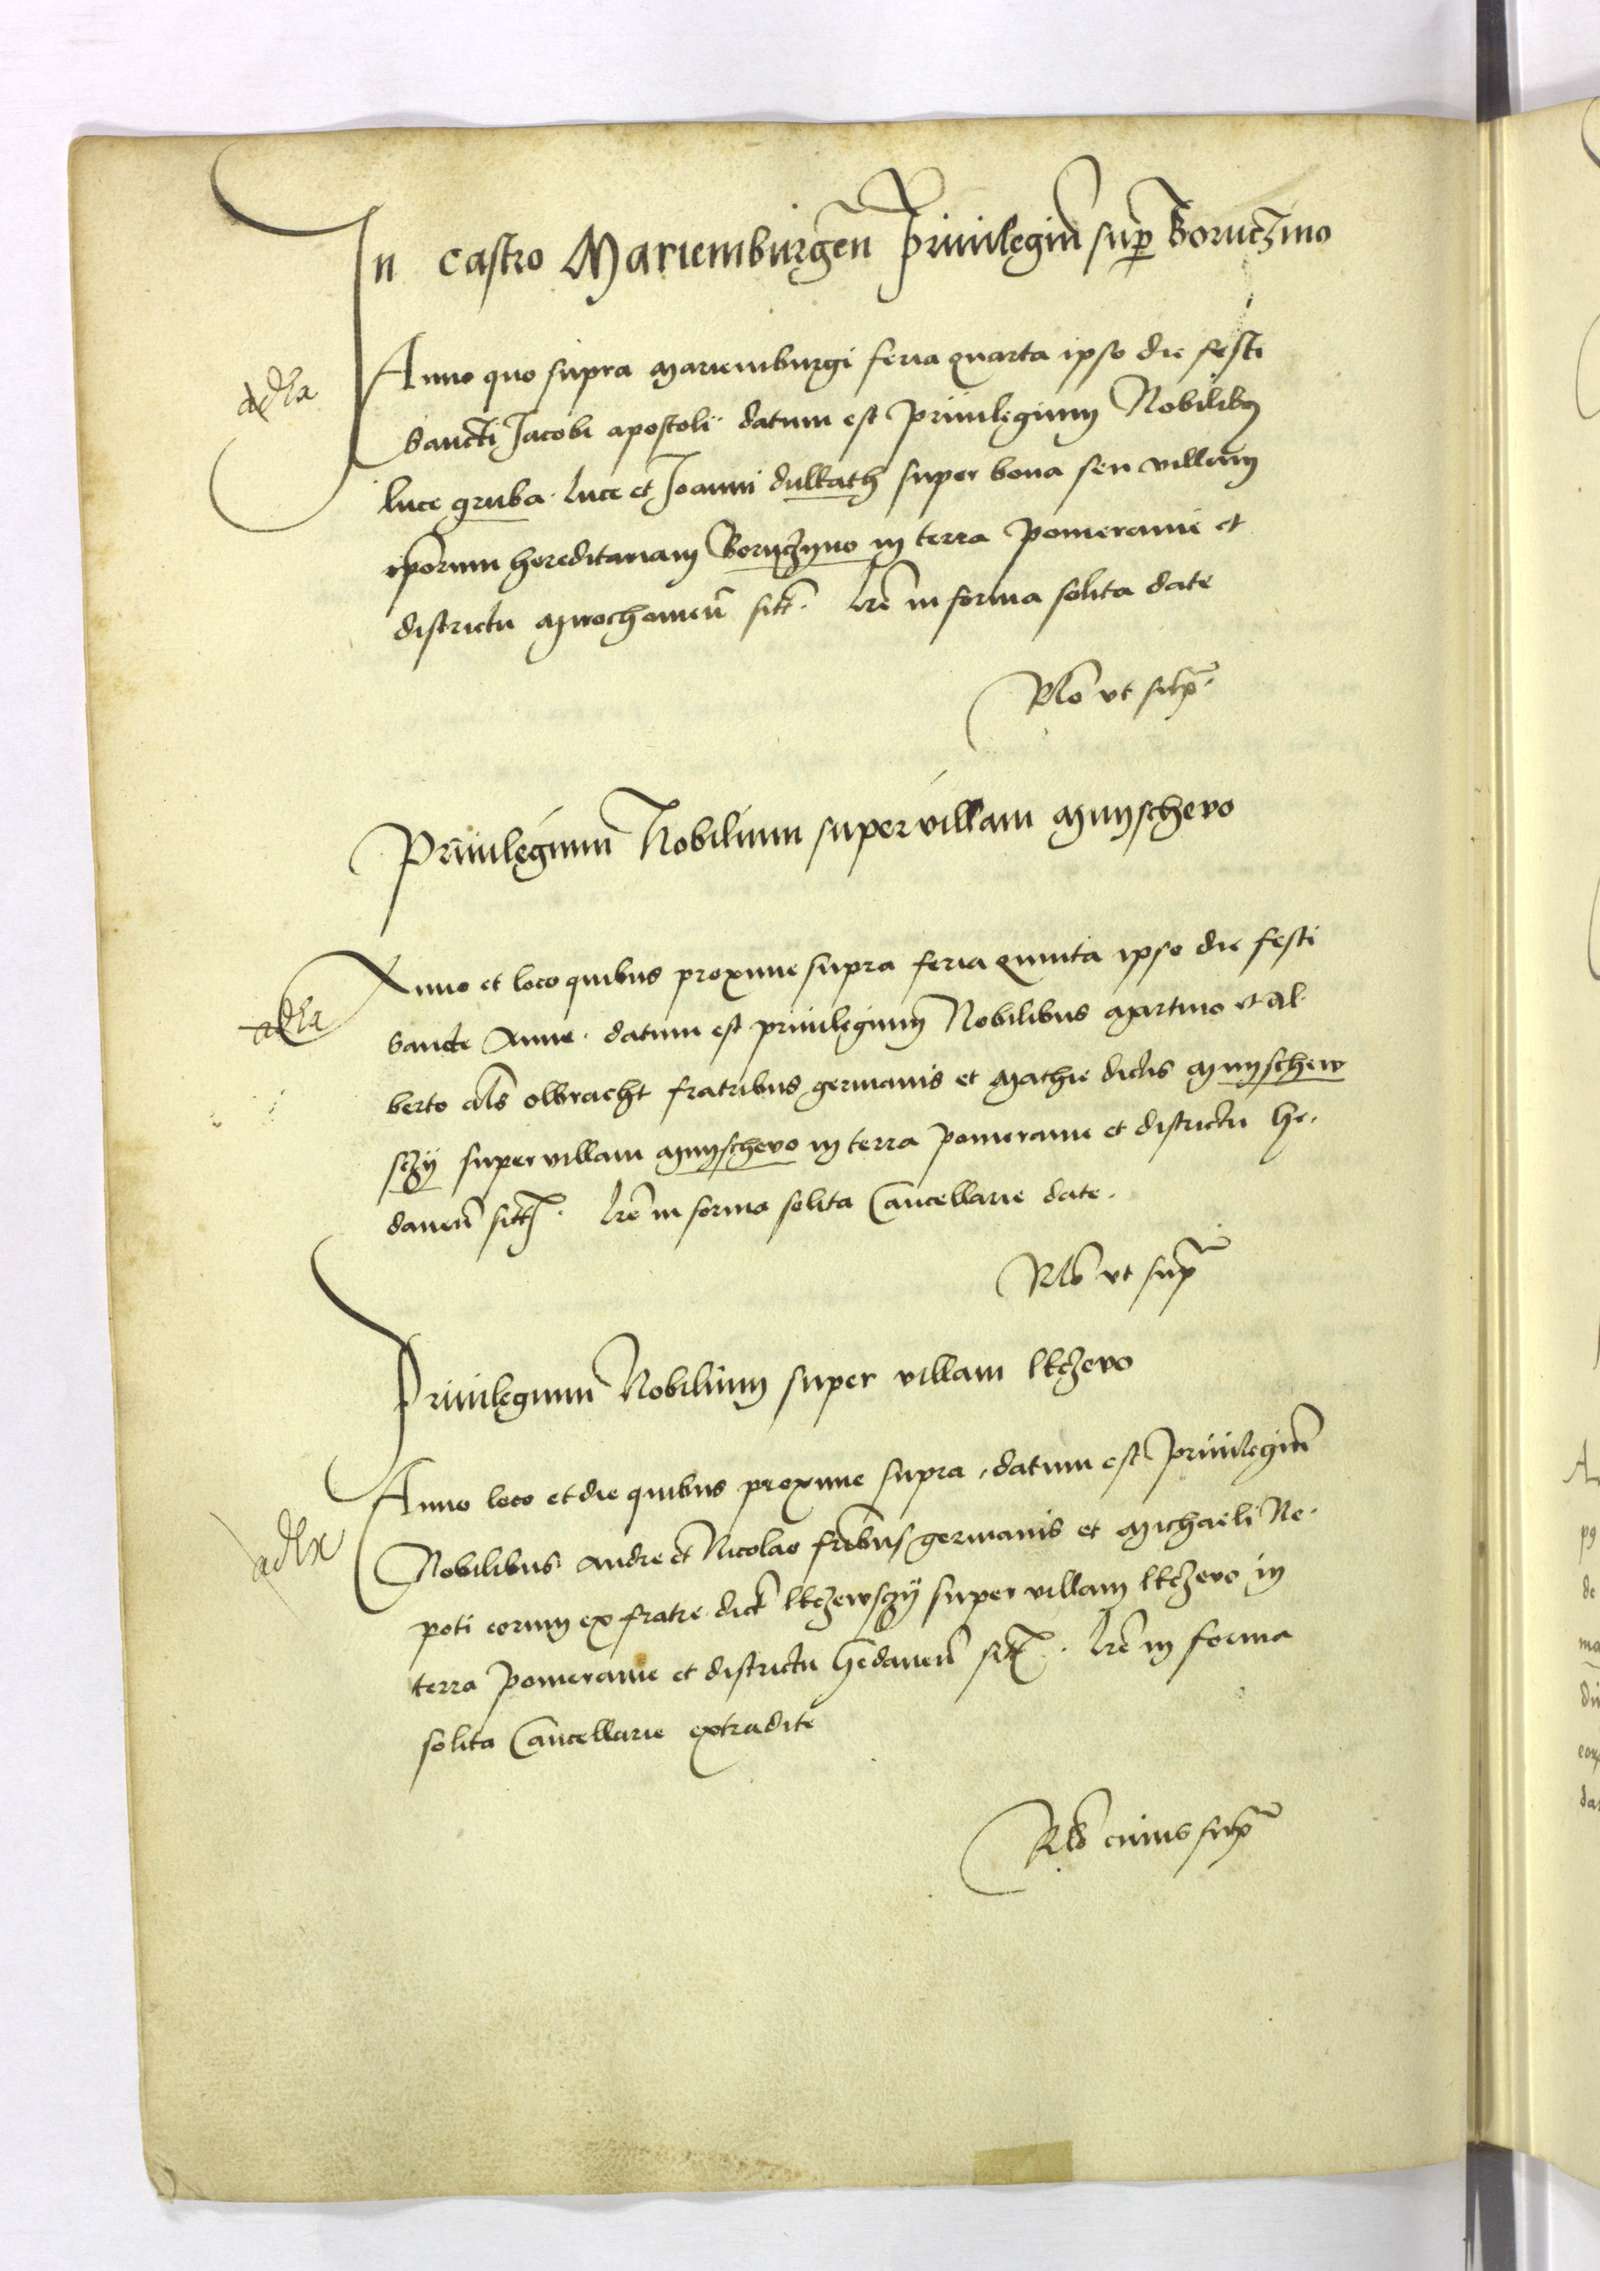 In castro Mariemburgeñ Priuilegiū sup̱ Boruczino
Anno quo supra Mariemburgi feria quarta ipso die festi
Sancti Jacobi apostoli datum est Priuilegium Nobilibꝫ
luce gruba luce et Joanni dulkath super bona seu villam
ip̄orum hereditariam Boruczyno in terra Pomeranie et
districtu Mirochoweñ sitt̄. Lr̄e in forma solita date
Rl̄o vt sup̄.
Priuilegium Nobilium super villam Mmyschevo
Anno et loco quibus proxime supra feria quinta ipso die festi
Sancte Anne. datum est priuilegium Nobilibus Martino et Al.
berto al̄s olbracht fratribus germanis et Mathie dictis Mmyschew
sczÿ super villam Mmyschevo in terra Pomeranie et districtu he.
daneñ sitt̄. Lr̄e in forma solita Cancellarie date.
Rl̄o vt sup̄
Priuilegium Nobilium super villam ltczevo
Anno loco et die quibus proxime supra, datum est Priuilegiū
Nobilibus Andree et Nicolao fr̄ibus germanis et Michaeli Ne.
poti eorum ex fratre dict̄ ltczewsczÿ super villam ltczevo in
terra Pomeranie et districtu hedaneñ sitt̄. Lr̄e in forma
solita Cancellarie extradite
Rl̄o cuius sup̄